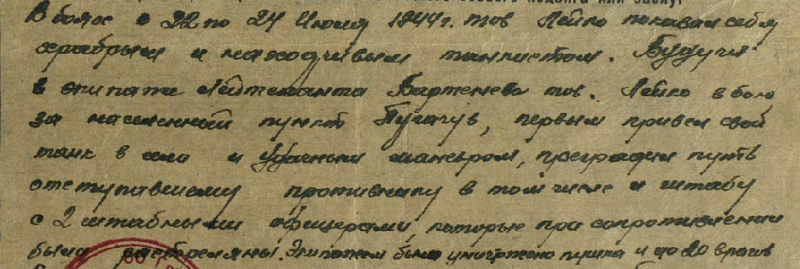 В боях с 22 по 24 Июля 1944 г. тов Лейко показал себя
храбрым и находчивым танкистом. Будучи
в экипаже Лейтенанта Бартенева тов. Лейко в бою
за населенной пункт Пугачув, первым привел свой
танк в село и удачным маневром, преградил путь
отступавшему противнику в том числе и штабу
с 2 штабными офицерами, которые при сопротивлении
были расстреляны. Экипажем было уничтожено пушка и до 20 врагов